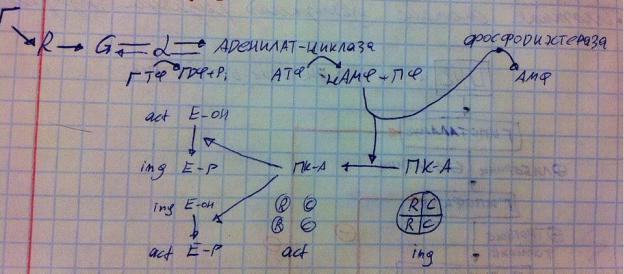 Г
R → G ⇌ α ⇌ АДЕНИЛАТ-ЦИКЛАЗА
ФОСФОДИЭСТЕРАЗА
ГТФ ГДФ+Pi АТФ цАМФ + ПФ АМФ
act E-OH
ing E-P ПК-А ← ПК-А
ing E-OH R C R C
act E-P R C R C
act ing